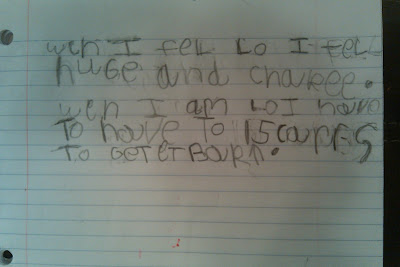 wen I fell Lo I fell
huge and charee.
wen I am LoI have
To have To 15 carfs
To GeT eT Bart.